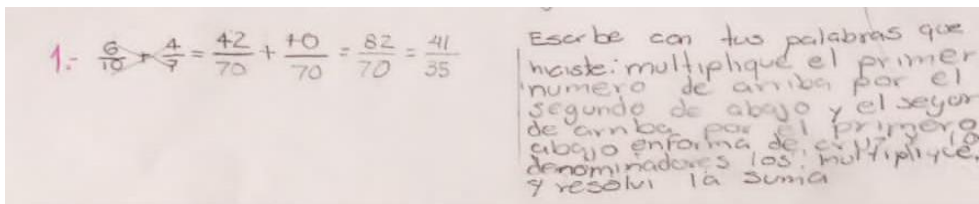 1.- 6/10 + 4/7 = 42/70 + 40/70 = 82/70 = 41/35
Escribe con tus palabras que
hiciste: multipliqué el primer
numero de arriba por el
segundo de abajo y el
de arriba por el primero
abajo en forma de cruz y lo
denominadores los multiplique
y resolvi la suma